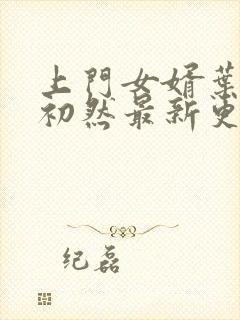 上門女婿葉
初然最新更
纪磊